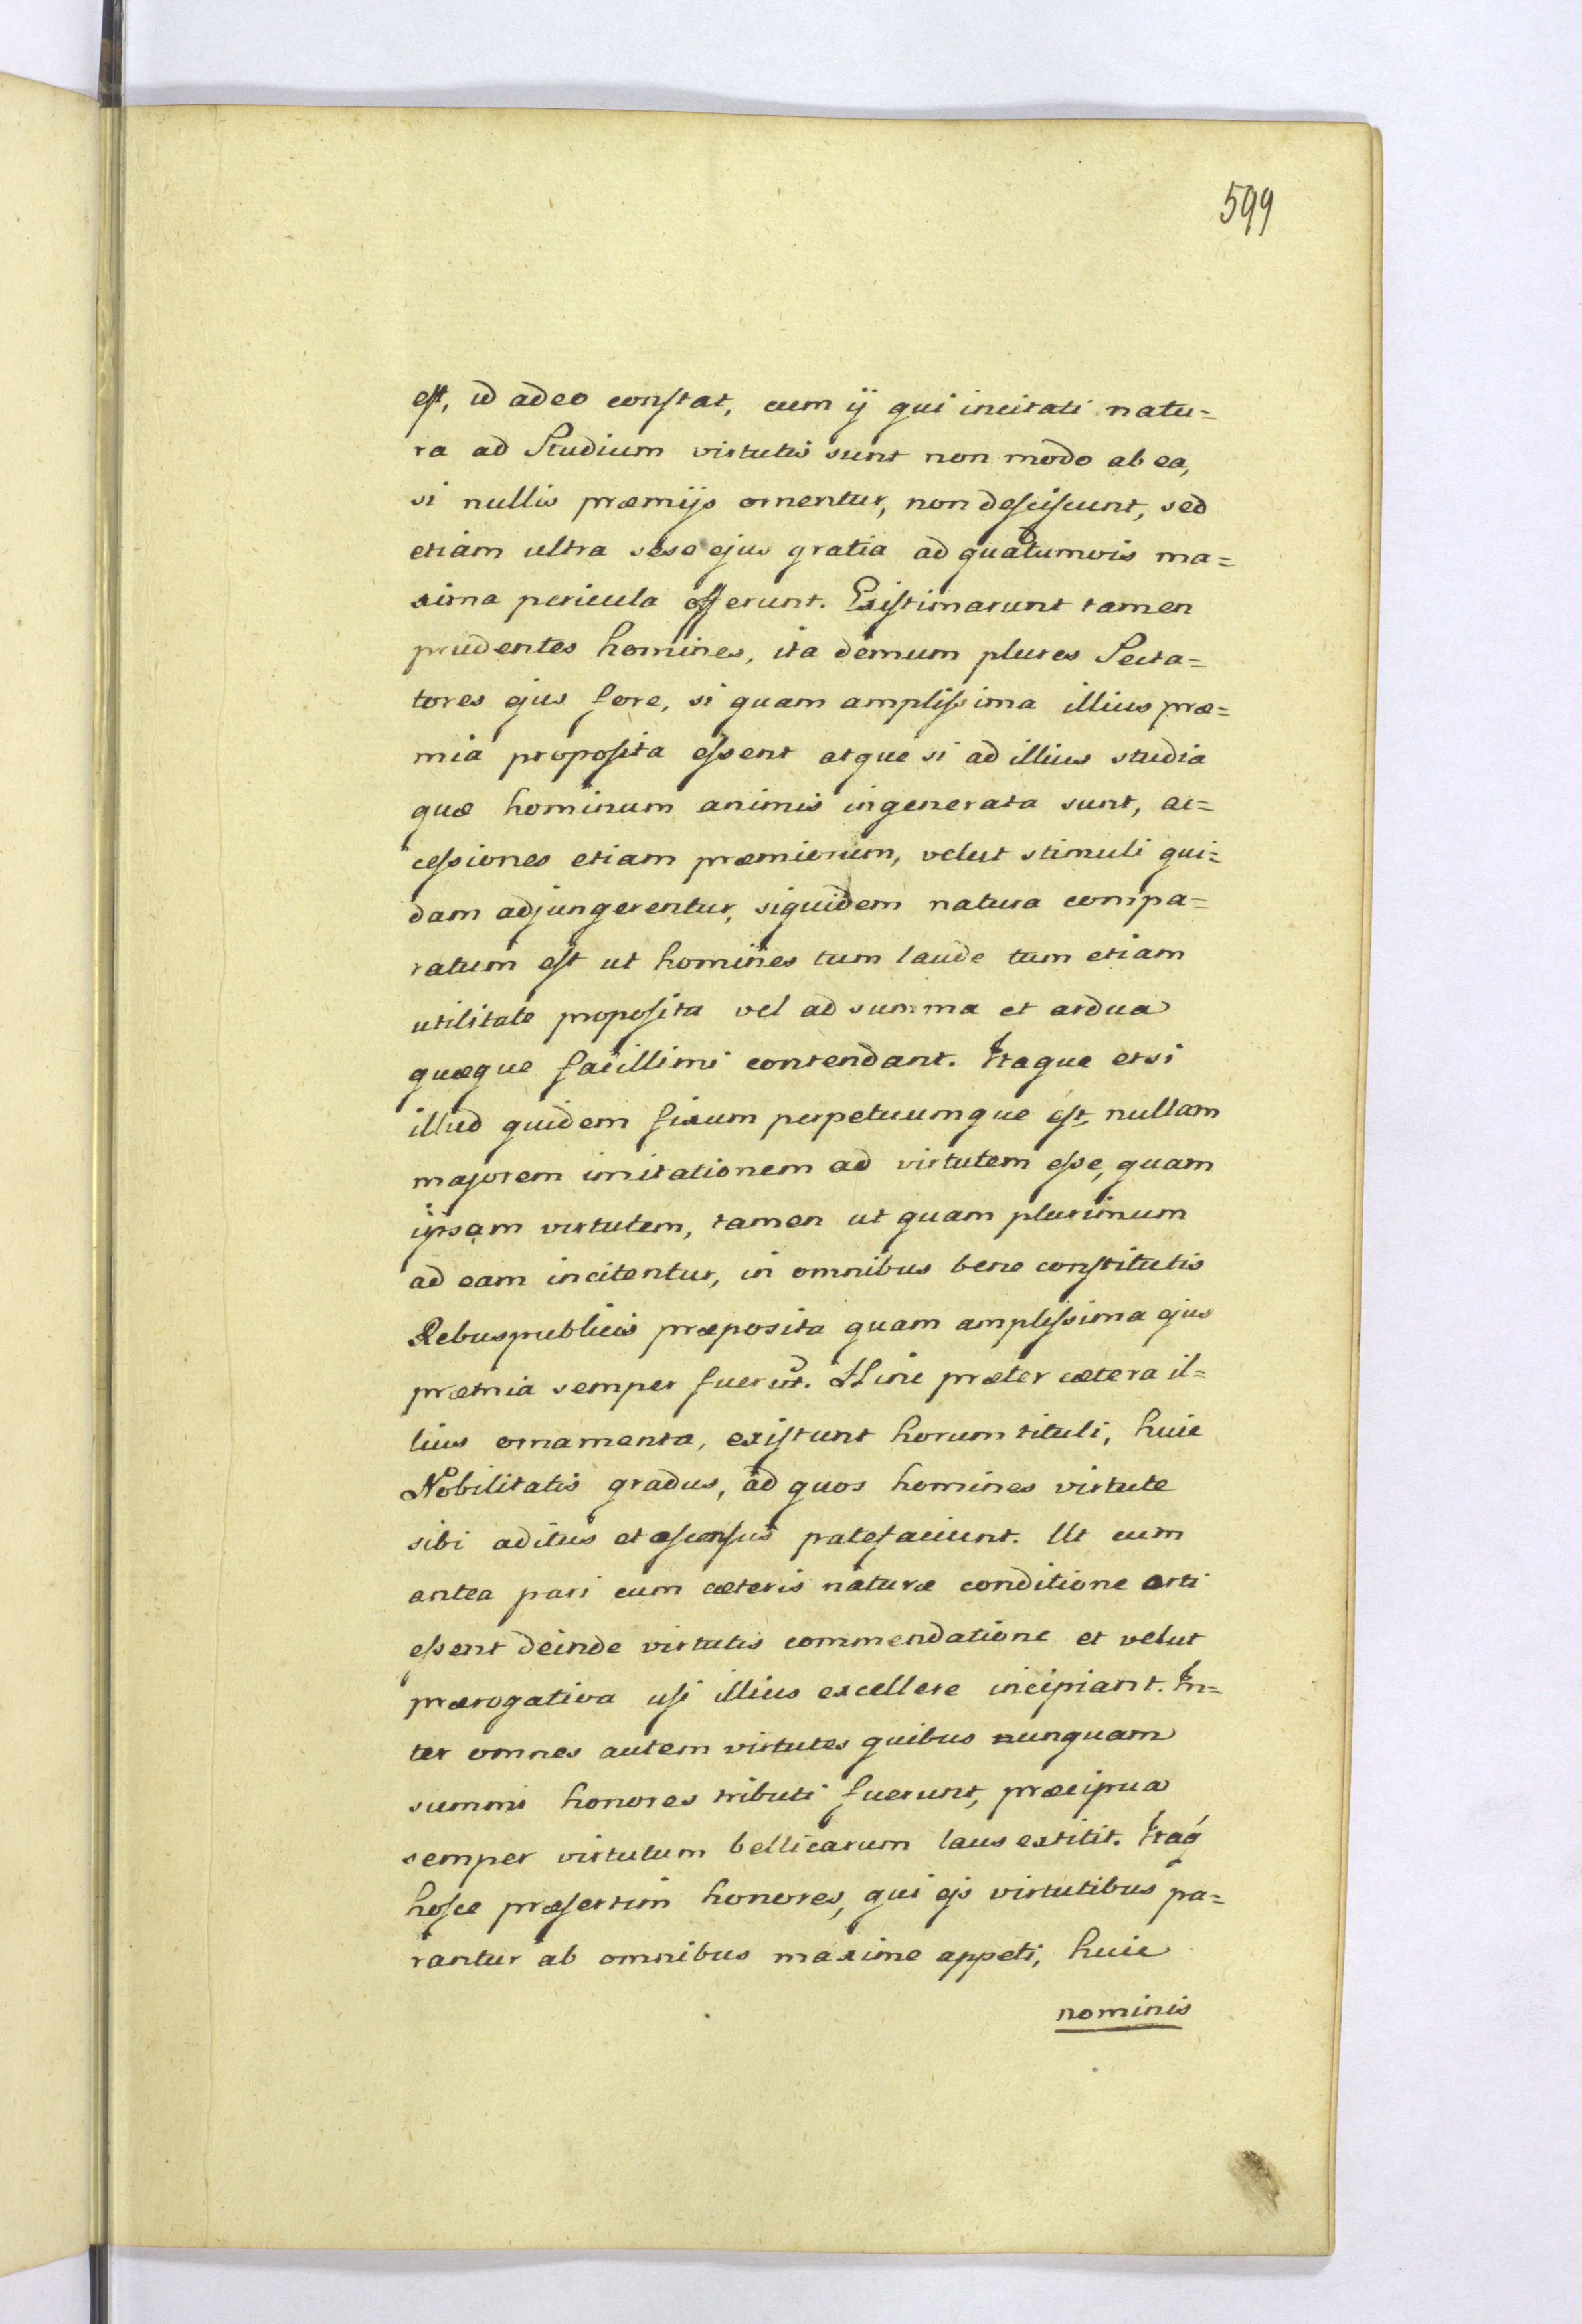 599
est, id adeo constat, cum ij qui incitati natu=
ra ad Studium virtutis sunt non modo ab ea,
si nullis præmijs ornentur, non desciscunt, sed
etiam ultra sese ejus gratia ad quãtumvis ma=
xima pericula offerunt. Existimarunt tamen
prudentes homines, ita demum plures Secta=
tores ejus fore, si quam amplissima illius præ=
mia proposita essent atque si ad illius studia
quæ hominum animis ingenerata sunt, ac=
cessiones etiam præmiorum, velut stimuli qui=
dam adjungerentur, siquidem natura compa=
ratum est ut homines tum laude tum etiam
utilitate proposita vel ad summa et ardua
quæque facillimi contendant. Itaque etsi
illud quidem fixum perpetuumque est, nullam
majorem imitationem ad virtutem esse, quam
ipsam virtutem, tamen ut quam plurimum
ad eam incitentur, in omnibus bene constitutis
Rebuspublicis præposita quam amplissima ejus
præmia semper fuerũt. Hinc præter cætera il=
lius ornamenta, existunt horum tituli, huic
Nobilitatis gradus, ad quos homines virtute
sibi aditus et ascensus patefaciunt. Ut cum
antea pari cum cæteris naturæ conditione orti
essent deinde virtutis commendatione et velut
prærogativa usi illius excellere incipiant. In=
ter omnes autem virtutes quibus nunquam
summi honores tributi fuerunt, præcipua
semper virtutum bellicarum laus extitit. Itaq́
hosce præsertim honores, qui ejs virtutibus pa=
rantur ab omnibus maxime appeti, huic
nominis